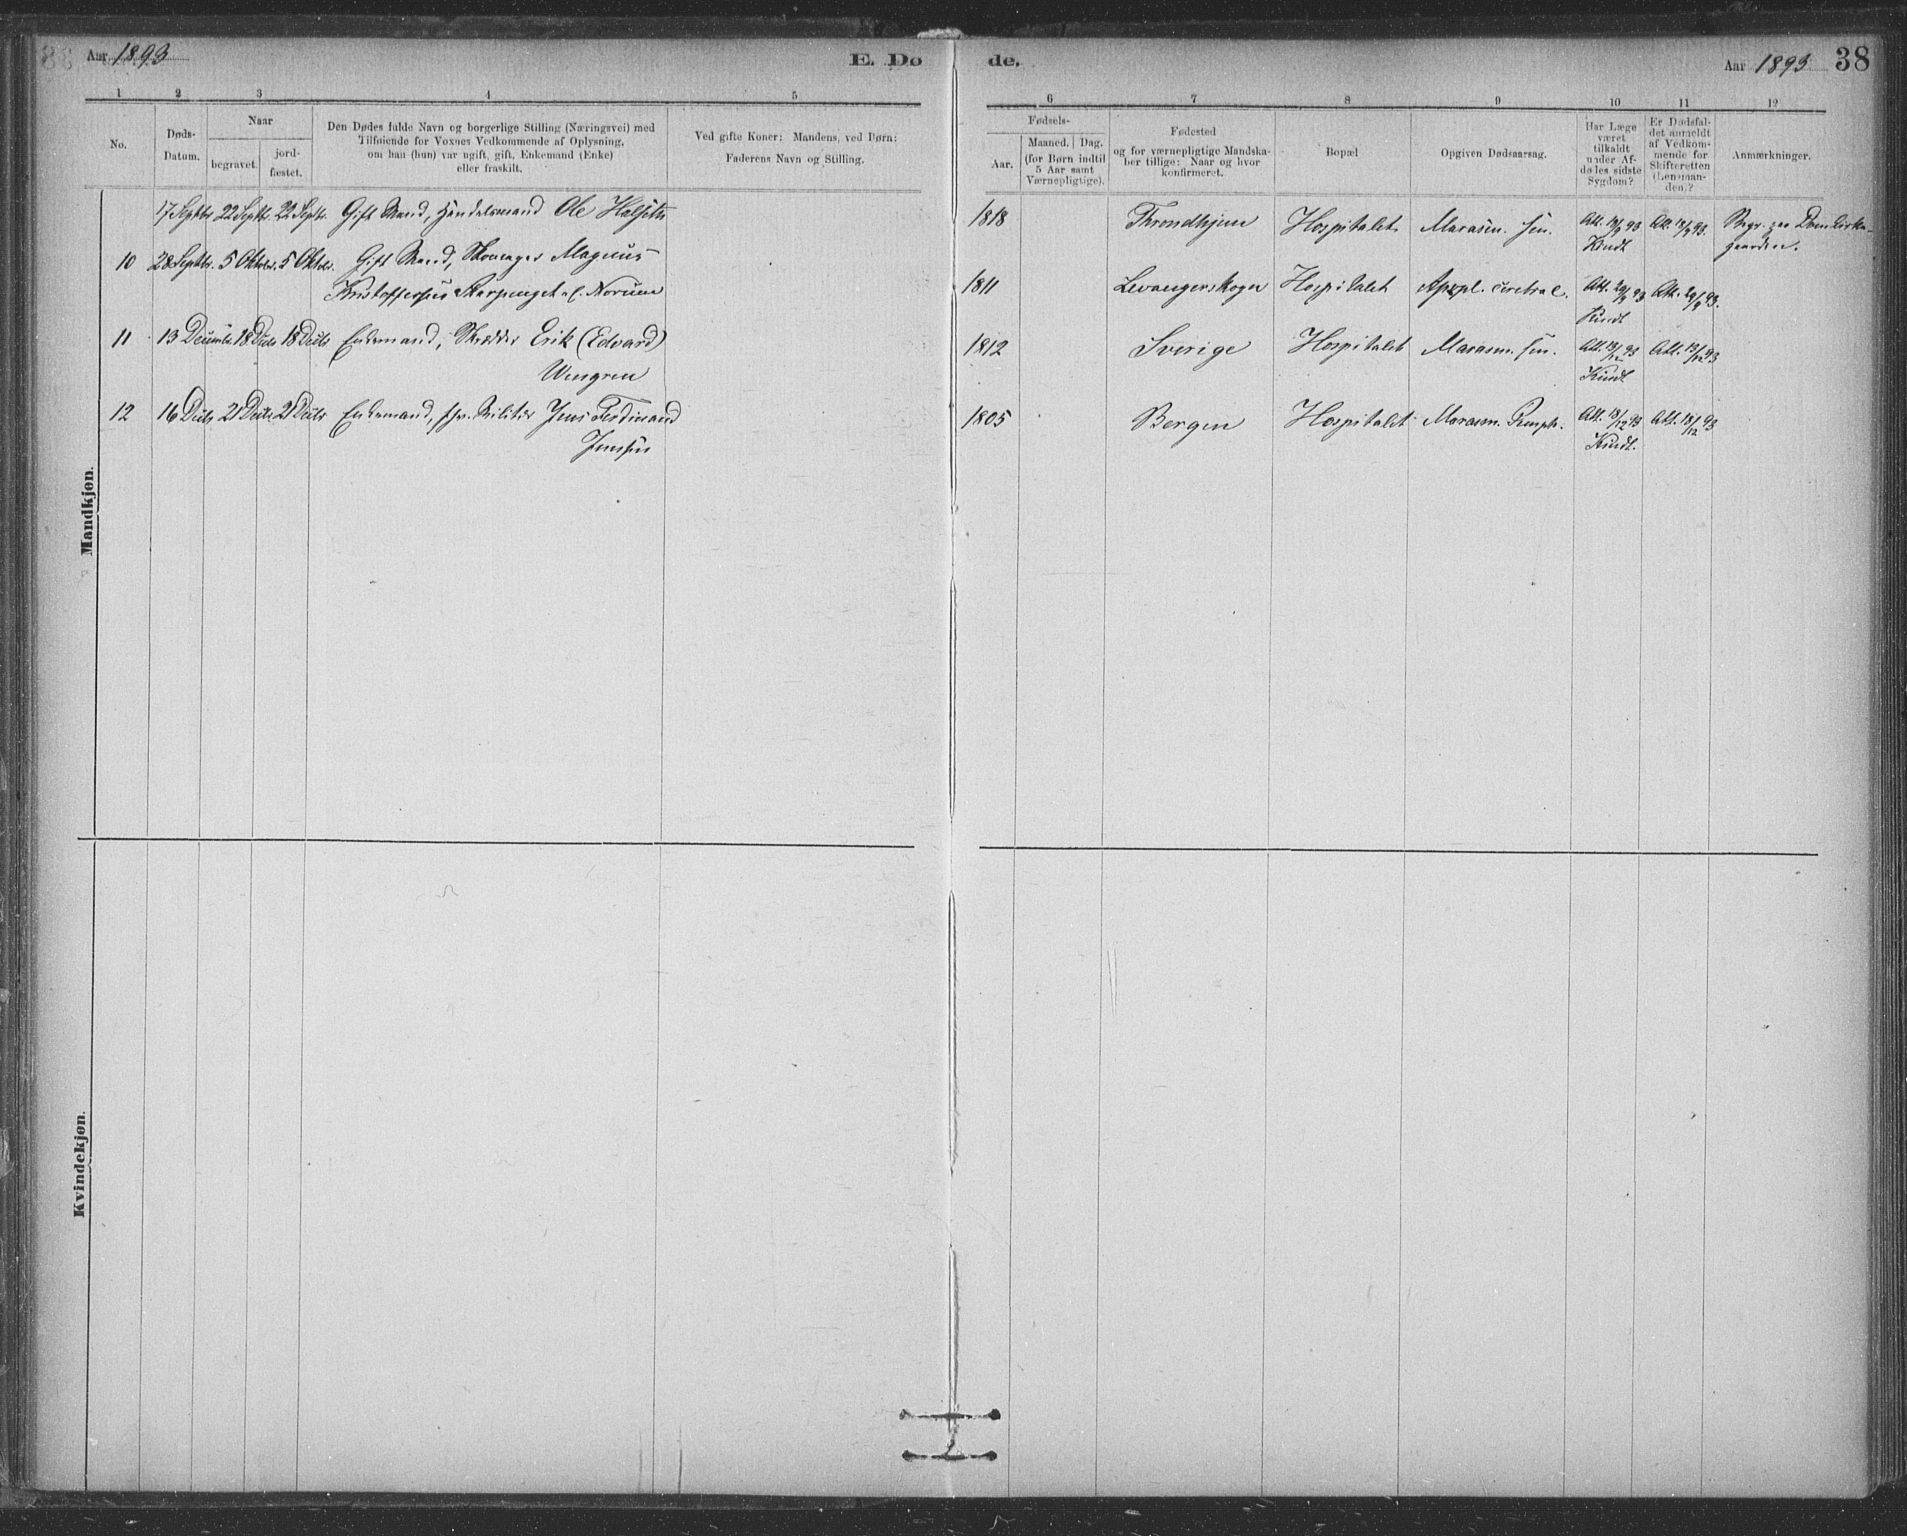 Aar 1893
E. Dø
1 2 3 4 5
No.
Døds-
Datum.
Naar
begravet.
jord-
fæstet.
Den Dødes fulde Navn og borgerlige Stilling (Næringsvei) med
Tilføiende for Voxnes Vedkommende af Oplysning,
om han (hun) var ugift, gift, Enkemand (Enke)
eller fraskilt.
Ved gifte Koner: Mandens, ved Børn:
Faderens Navn og Stilling.
Mandkjøn.
17 Septbr. 22 Septbr. 22 Septbr. Gift Mand, Handelsmand Ole Halseth
10 28 Septbr. 5 Oktobr. 5 Oktobr. Gift Mand, Skomager Magnus
Kristoffersen Skarpenget al. Norum
11 13 Decembr. 18 Decbr 18 Decbr Enkemand, Skrædder Erik (Edvard)
Wengren
12 16 Decbr. 21 Decbr. 21 Decbr Enkemand, Jens Ferdinand
Jensen
Kvindekjøn.
de.
Aar 1893 38
6 7 8 9 10 11 12
Fødsels-
Aar.
Maaned. Dag.
(for Børn indtil
5 Aar samt
Værnepligtige).
Fødested
og for værnepligtige Mandska-
ber tillige: Naar og hvor
konfirmeret.
Bopæl
Opgiven Dødsaarsag.
Har Læge
været
tilkaldt
under Af-
dødes sidste
Sygdom?
Er Dødsfal-
det anmeldt
af Vedkom-
mende for
Skifteretten
(Lensman-
den.?
Anmærkninger.
1818 Throndhjem Hospitalet Marasm. sen. Att. Att. Begr. paa Domkirke-
Kindt gaarden.
1811 Levangerskogn Hospitalet Apopl. cerebral. Att. 29/9 93 Att. 29/9 93.
Kindt
1812 Sverige Hospitalet Marasm. sen. Att. 13/12 93 Att. 13/12 93
Kindt
1805 Bergen Hospitalet Marasm. Att. 18/12 93 Att. 18/12 93
Kindt.